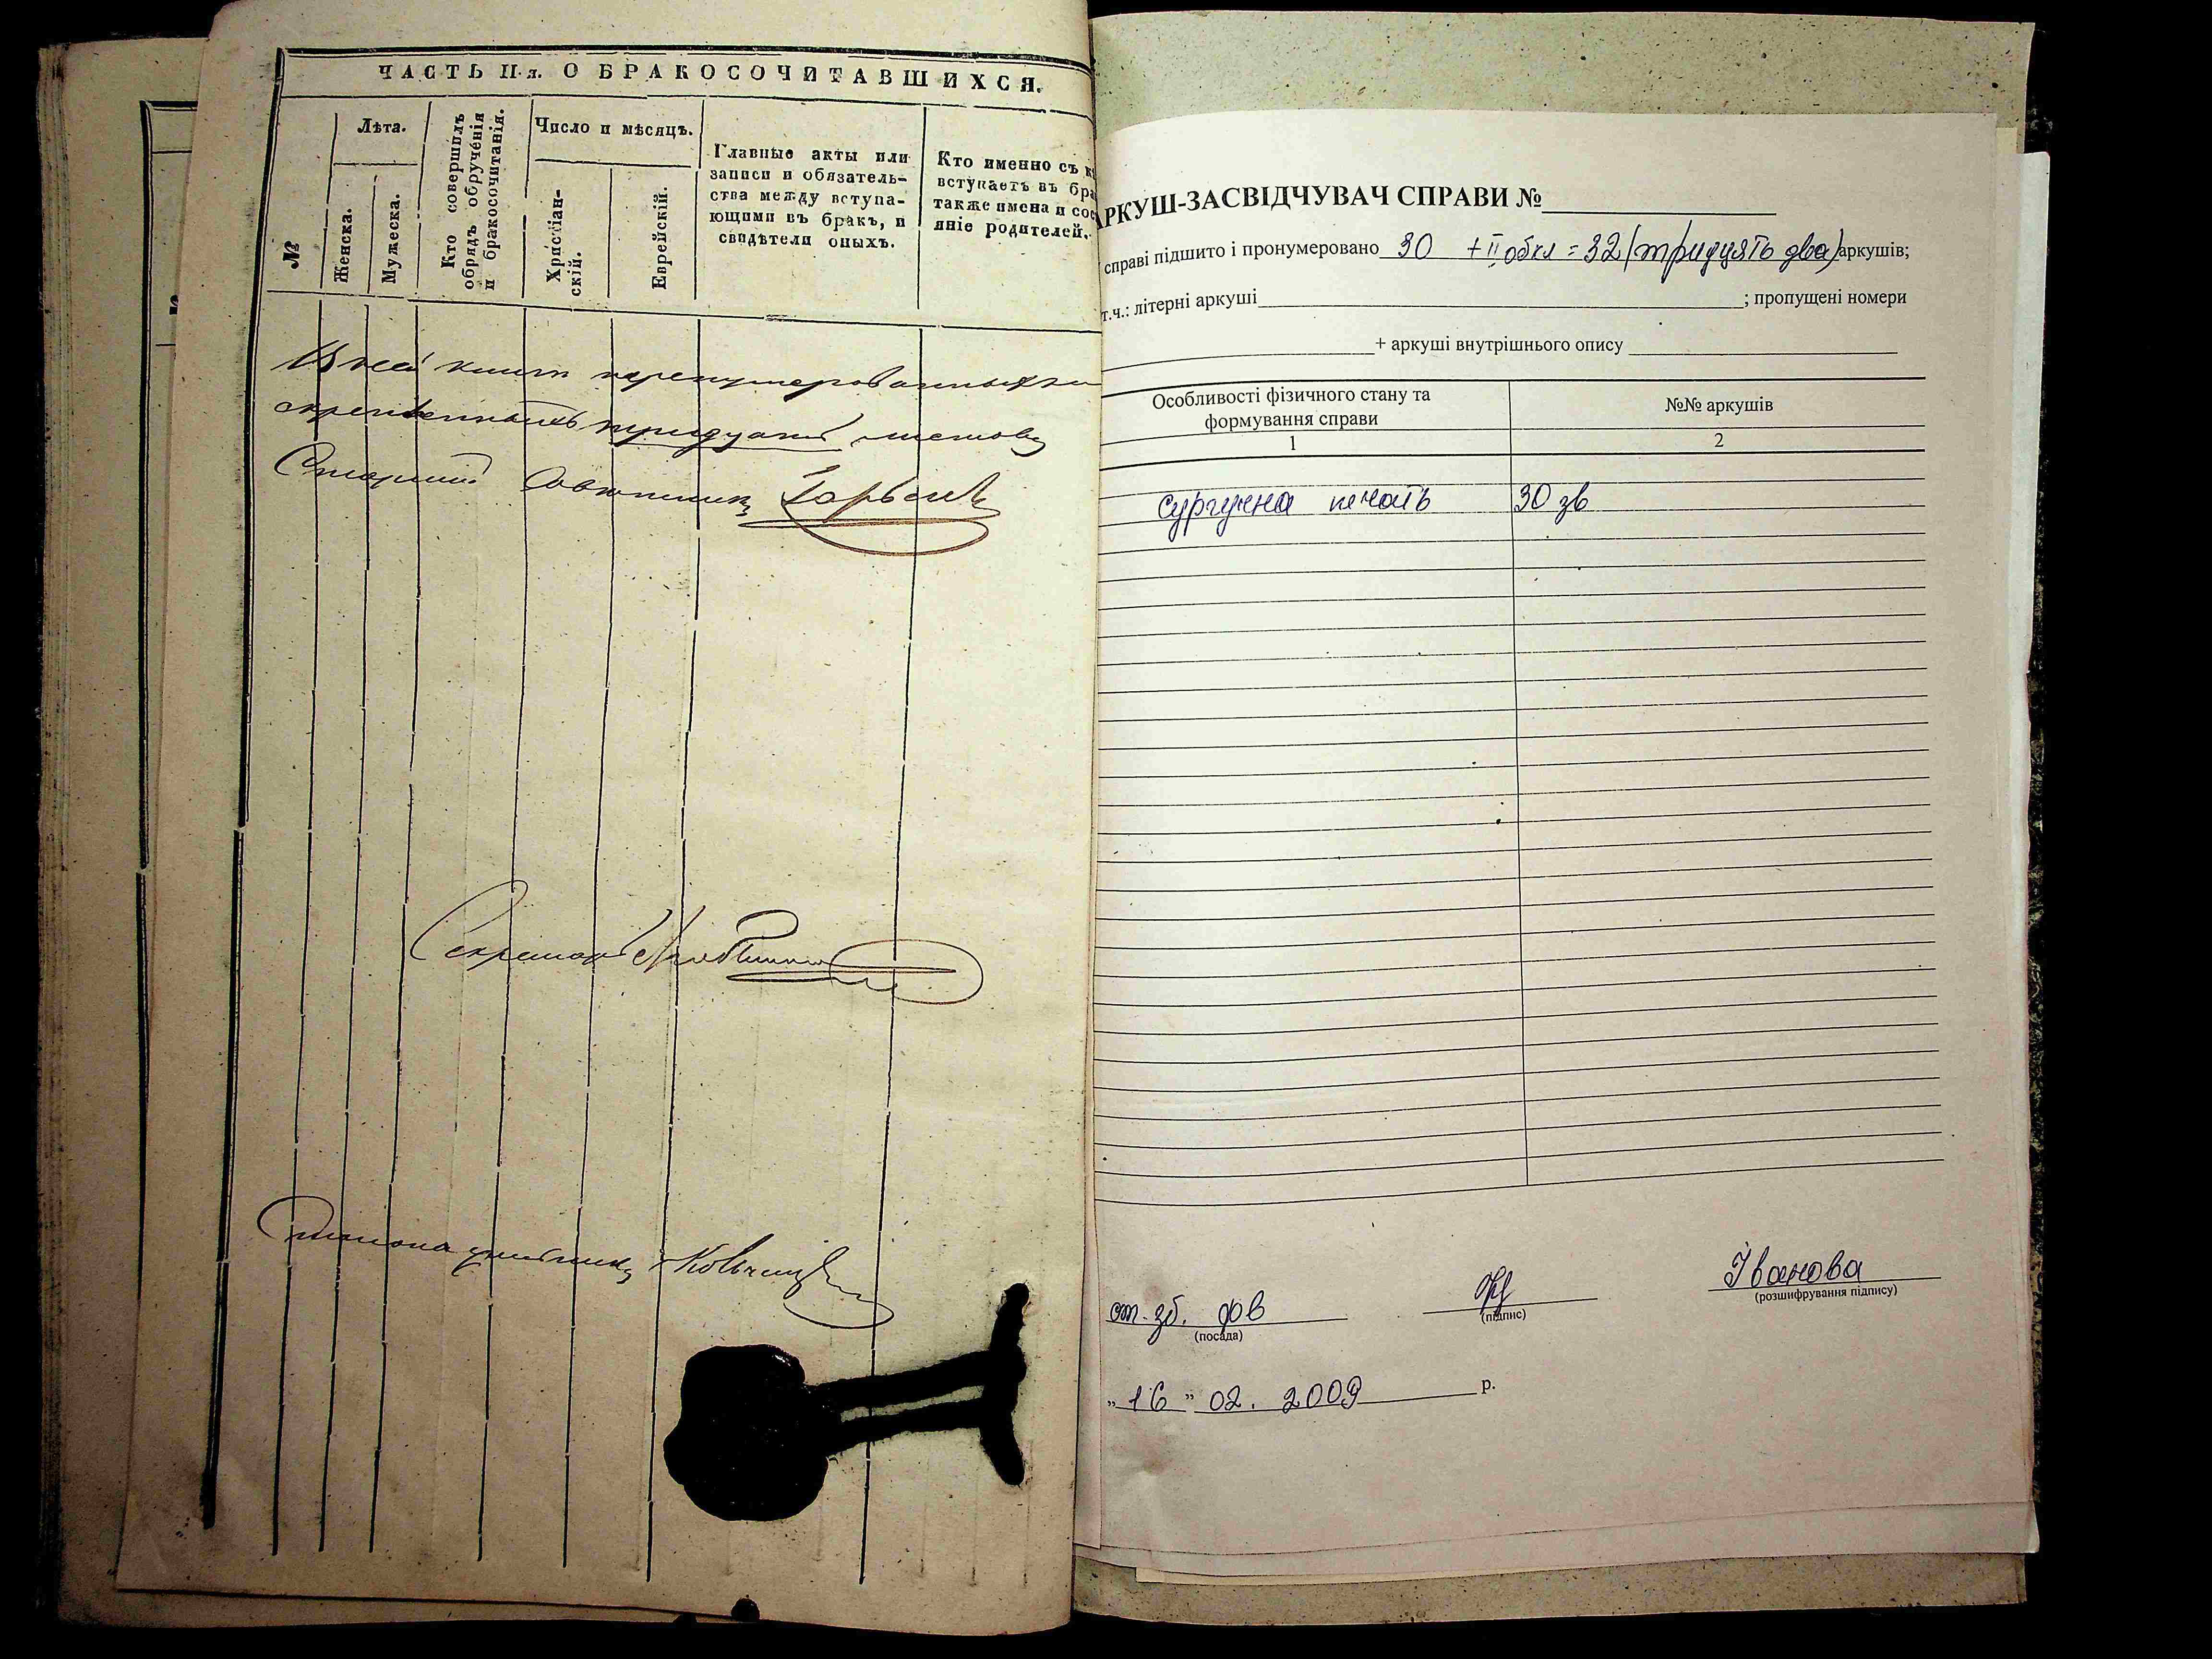 ЧАСТЬ II-я. О БРАКОСОЧИТАВШИХСЯ.
№
Лѣта.
Женска.
Мужеска.
Кто совершилъ
обрядъ обрученія
и бракосочитанія.
Число и мѣсяцъ.
Христіан-
скій.
Еврейскій.
Главные акты или
записи и обязатель-
ства между вступа-
ющими въ бракъ, и
свидѣтели оныхъ.
Кто именно съ
вступаетъ въ
также имена и
яніе родителей.
книги перенумерованныхъ
тридцать листовъ
Старший Совѣтникъ
Секретарь
АРКУШ-ЗАСВІДЧУВАЧ СПРАВИ №
справі підшито і пронумеровано 30 + II обкл = 32 (тридцять два) аркушів;
т.ч.: літерні аркуші ; пропущені номери
+ аркуші внутрішнього опису
Особливості фізичного стану та
формування справи
№№ аркушів
1
2
сургучна печать 30 зв
Іванова
(розшифрування підпису)
(підпис)
ст. зб. фв
(посада)
„ 16 ” 02. 2009 р.